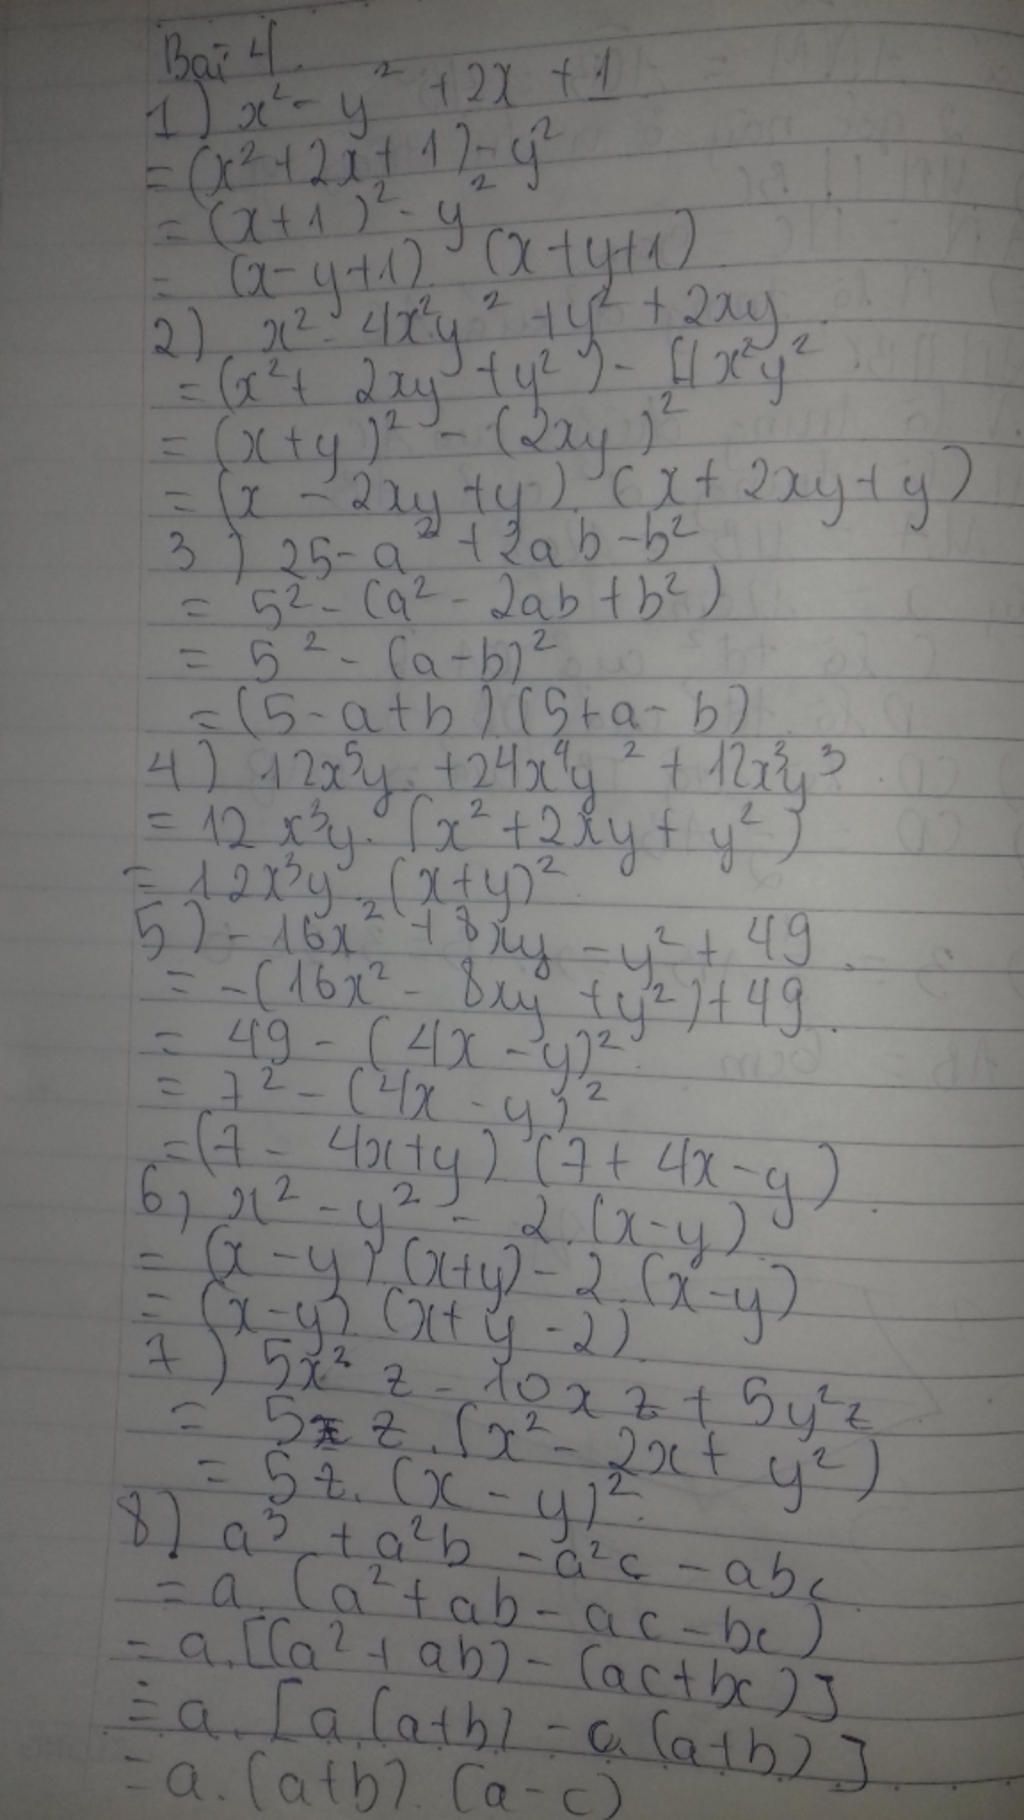 Bài 4.
1) x² - y² + 2x + 1
= (x² + 2x + 1) - y²
= (x+1)² - y²
= (x - y + 1). (x + y + 1)
2) x² - 4x²y² + y² + 2xy
= (x² + 2xy + y²) - 4x²y²
= (x + y)² - (2xy)²
= (x - 2xy + y). (x + 2xy + y)
3) 25 - a² + 2ab - b²
= 5² - (a² - 2ab + b²)
= 5² - (a - b)²
= (5 - a + b) (5 + a - b)
4) 12x⁵y + 24x⁴y² + 12x³y³
= 12x³y. (x² + 2xy + y²)
= 12x³y. (x + y)²
5) - 16x² + 8xy - y² + 49
= -(16x² - 8xy + y²) + 49
= 49 - (4x - y)²
= 7² - (4x - y)²
= (7 - 4x + y) (7 + 4x - y)
6) x² - y² - 2.(x - y)
= (x - y).(x + y) - 2.(x - y)
= (x - y). (x + y - 2)
7) 5x²z - 10xz + 5y²z
= 5z. (x² - 2x + y²)
= 5z. (x - y)²
8) a³ + a²b - a²c - abc
= a. (a² + ab - ac - bc)
= a. [(a² + ab) - (ac + bc)]
= a. [a.(a+b) - c.(a+b)]
= a. (a+b). (a - c)